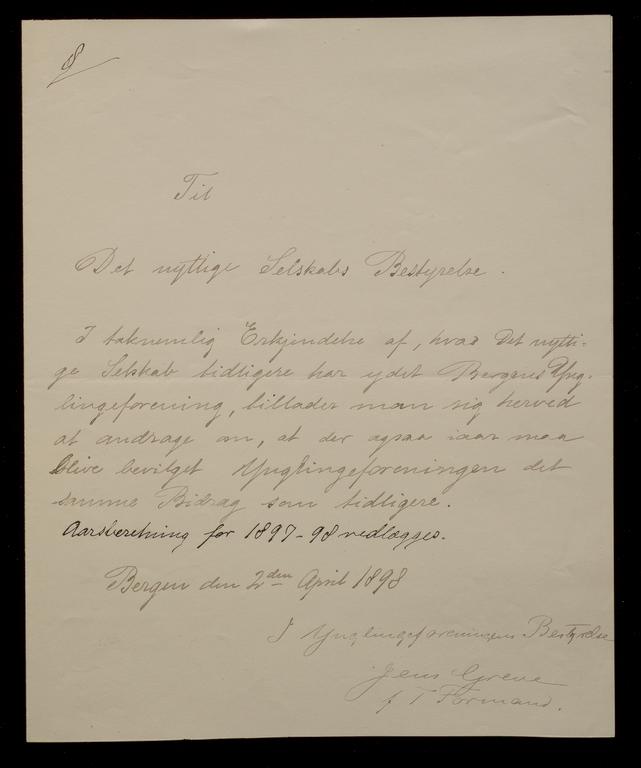 8
Til
Det nyttige Selskabs Bestyrelse.
I taknemlig Erkjendelse af, hvad Det nytti-
ge Selskab tidligere har ydet Bergens Yng-
lingeforening, tillader man sig herved
at andrage om, at der ogsaa iaar maa
blive bevilget Ynglingeforeningen det
samme Bidrag som tidligere.
Aarsberetning for 1897-98 vedlægges.
Bergen den 2den April 1898
I Ynglingeforeningens Bestyrelse
Jens Greve
f. T. Formand.